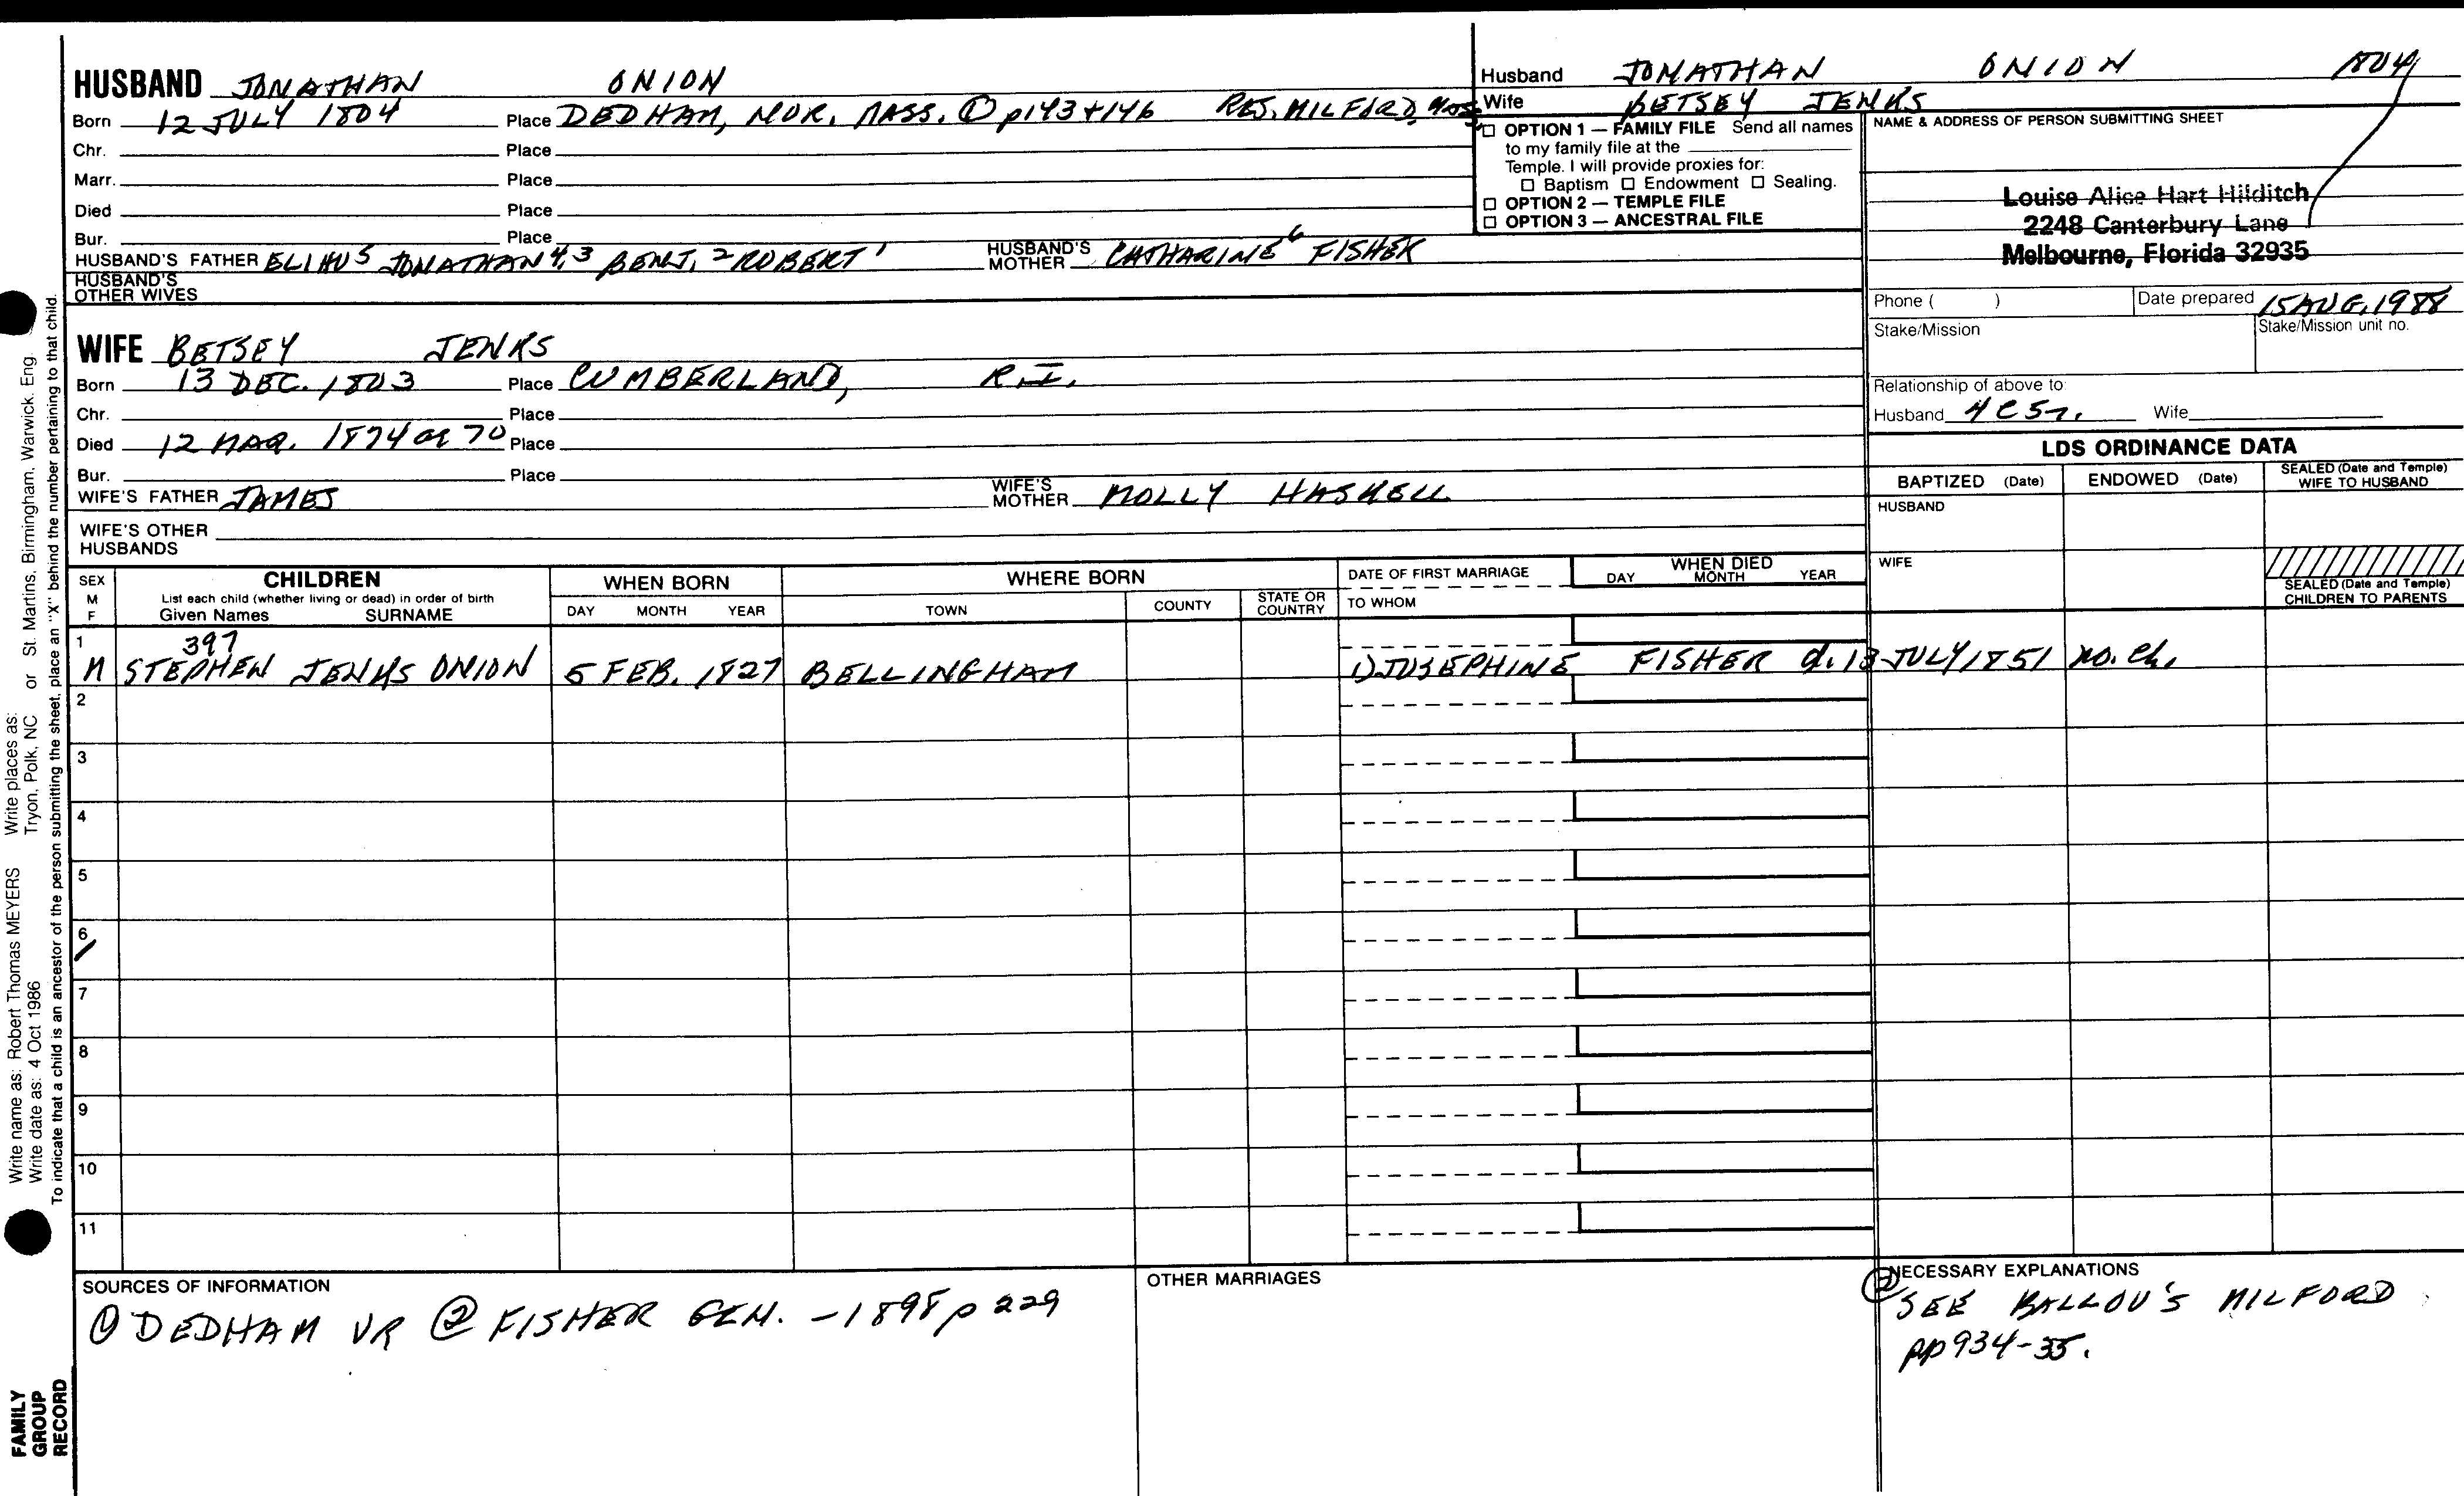 HUSBAND JONATHAN ONION
Born 12 JULY 1804 Place DEDHAM, NOR. MASS. ① p143+146 RES. MILFORD, MASS
Chr. Place
Marr. Place
Died Place
Bur. Place
HUSBAND'S FATHER ELIHU 5 JONATHAN 4,3 BENJ. 2 ROBERT 1 HUSBAND'S MOTHER CATHARINE 6 FISHER
HUSBAND'S OTHER WIVES
WIFE BETSEY JENKS
Born 13 DEC. 1803 Place CUMBERLAND, R.I.
Chr. Place
Died 12 MAR. 1874 or 70 Place
Bur. Place
WIFE'S FATHER JAMES WIFE'S MOTHER MOLLY HASKELL
WIFE'S OTHER HUSBANDS
Husband JONATHAN ONION 1804
Wife BETSEY JENKS
OPTION 1 — FAMILY FILE Send all names
to my family file at the
Temple. I will provide proxies for:
Baptism Endowment Sealing.
OPTION 2 — TEMPLE FILE
OPTION 3 — ANCESTRAL FILE
NAME & ADDRESS OF PERSON SUBMITTING SHEET
Louise Alice Hart Hilditch
2248 Canterbury Lane
Melbourne, Florida 32935
Phone ( ) Date prepared 15 AUG. 1988
Stake/Mission Stake/Mission unit no.
Relationship of above to:
Husband 4C5r. Wife
LDS ORDINANCE DATA
BAPTIZED (Date) ENDOWED (Date) SEALED (Date and Temple) WIFE TO HUSBAND
HUSBAND
WIFE
SEALED (Date and Temple) CHILDREN TO PARENTS
SEX M F
CHILDREN
List each child (whether living or dead) in order of birth
Given Names SURNAME
WHEN BORN
DAY MONTH YEAR
WHERE BORN
TOWN COUNTY STATE OR COUNTRY
DATE OF FIRST MARRIAGE
TO WHOM
WHEN DIED
DAY MONTH YEAR
1 397
M STEPHEN JENKS ONION 5 FEB. 1827 BELLINGHAM 1) JOSEPHINE FISHER d. 13 JULY 1851 no. ch.
2
3
4
5
6
7
8
9
10
11
SOURCES OF INFORMATION
① DEDHAM VR ② FISHER GEN. - 1898 p 229
OTHER MARRIAGES
NECESSARY EXPLANATIONS
② SEE BALLOU'S MILFORD
pp 934-35.
Write name as: Robert Thomas MEYERS Write places as:
Write date as: 4 Oct 1986 Tryon, Polk, NC or St. Martins, Birmingham, Warwick, Eng
To indicate that a child is an ancestor of the person submitting the sheet, place an "X" behind the number pertaining to that child.
FAMILY
GROUP
RECORD